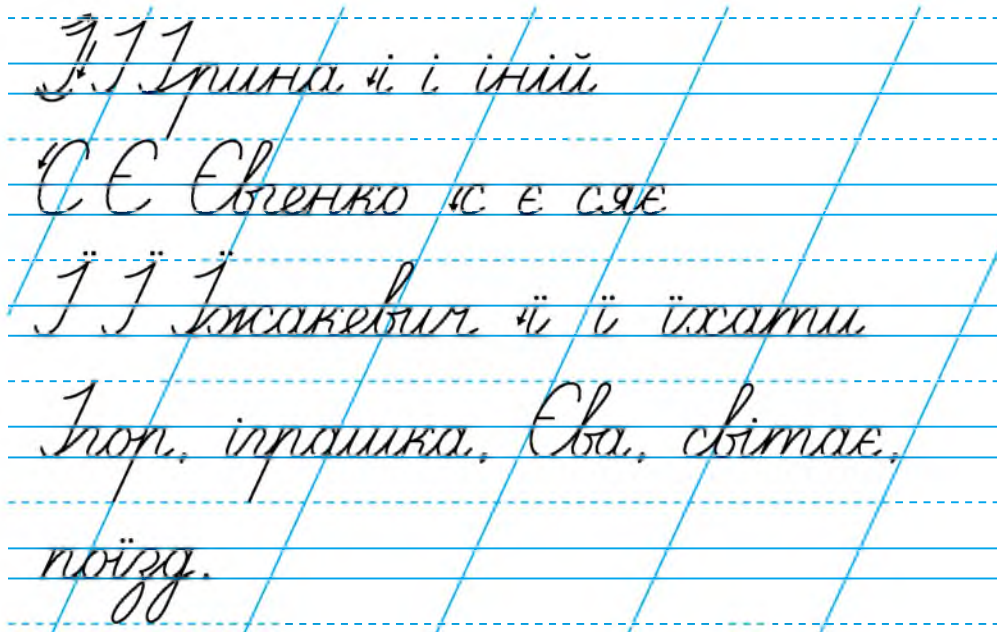 І І Ірина і і іній
Є Є Євгенко є є сяє
Ї Ї Їжакевич ї ї їхати
Ігор, іграшка, Єва, світає,
поїзд.